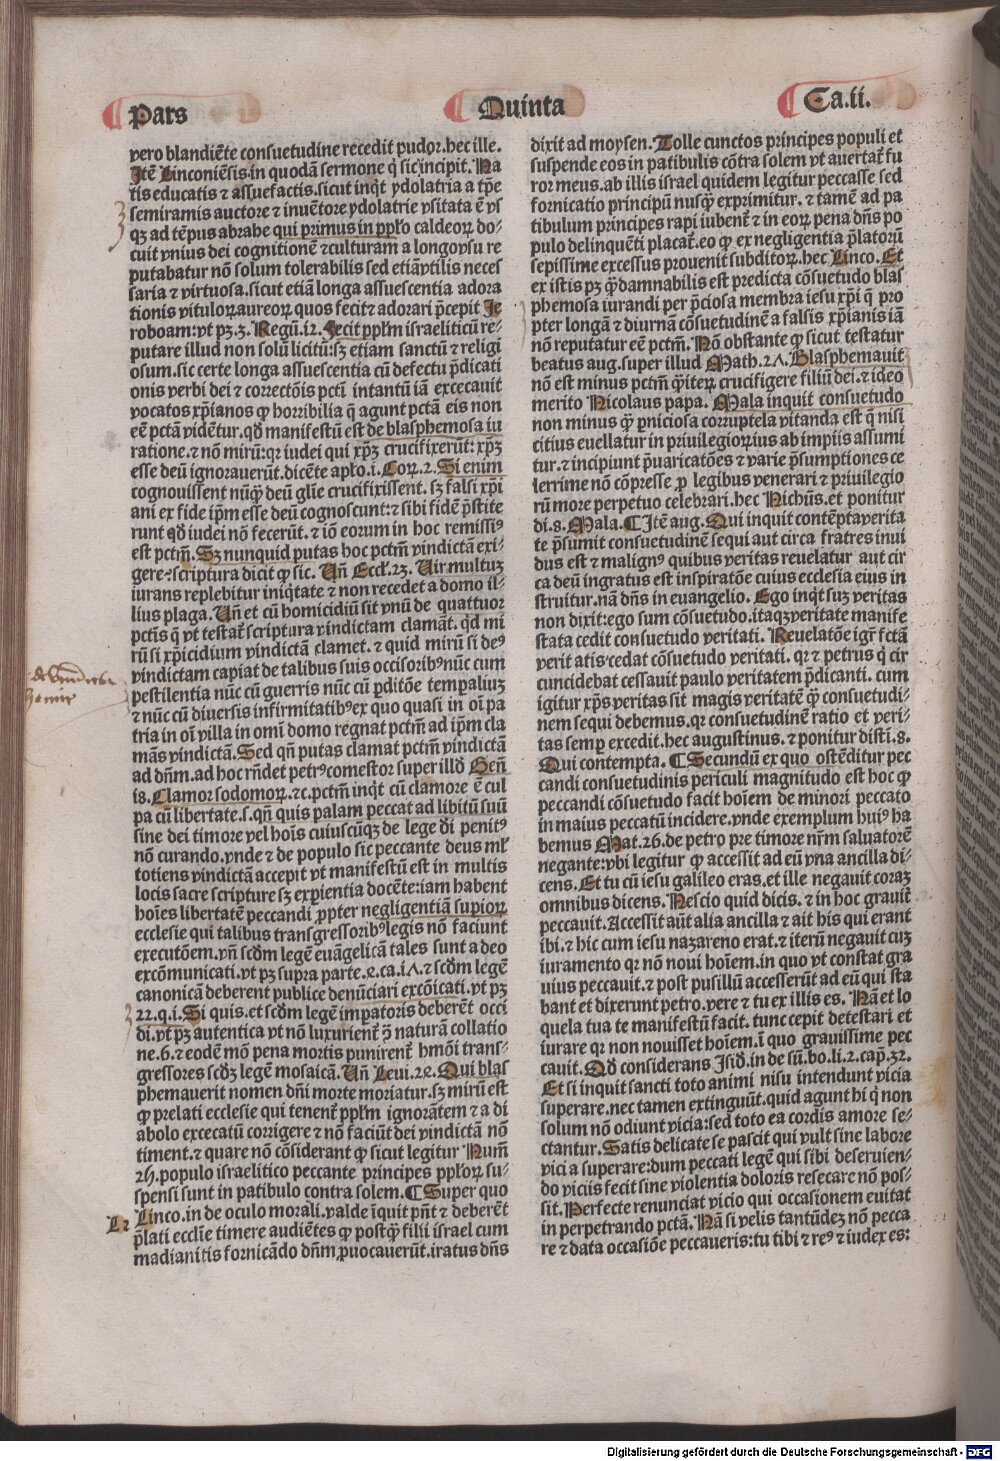 Pars
Quinta
Ca.ii.
vero blandiẽte consuetudine recedit pudor.hec ille.
Itẽ Linconiẽsis.in quodã sermone q̃ sic incipit. Na
tis educatis ⁊ assuefactis.sicut inqͥt ydolatria a tp̃e
semiramis auctore ⁊ inuẽtore ydolatrie vsitata ẽ vs
qꝫ ad tẽpus abrahe qui primus in pplo caldeoꝝ do⸗
cuit vnius dei cognitionẽ ⁊culturam a longo vsu re
putabatur nõ solum tolerabilis sed etiã vtilis neces
saria ⁊ virtuosa.sicut etiã longa assuescentia adora
tionis vituloꝝ aureoꝝ quos fecit ⁊ adorari p̃cepit Je
roboam:vt pꝫ.3. Regũ.12. Fecit pplm israeliticũ re⸗
putare illud non solũ licitũ:sꝫ etiam sanctũ ⁊ religi
osum.sic certe longa assuescentia cũ defectu p̃dicati
onis verbi dei ⁊ correctõis pctĩ intantũ iã excecauit
vocatos xp̃ianos ꝙ horribilia q̃ agunt pctã eis non
eẽ pctã vidẽtur.qd̃ manifestũ est de blasphemosa iu
ratione.⁊ nõ mirũ:qꝛ iudei qui xp̃ꝫ crucifixerũt: xp̃ꝫ
esse deũ ignorauerũt.dicẽte aplo.i.Coꝝ.2. Si enim
cognouissent nũqͣ deũ glie crucifixissent.sꝫ falsi xp̃i
ani ex fide ip̃m esse deũ cognoscunt:⁊ sibi fidẽ p̃stite
runt qd̃ iudei nõ fecerũt.⁊ iõ eorum in hoc remissiꝰ
est pctm̃. Sꝫ nunquid putas hoc pctm̃ vindictã exi⸗
gere⁊scriptura dicit ꝙ sic. Uñ Eccl.23. Uir multuꝫ
iurans replebitur iniqͥtate ⁊ non recedet a domo il⸗
lius plaga. Uñ et cũ homicidiũ sit vnũ de quattuor
pctñs q̃ vt testat̃ scriptura vindictam clamãt.qd mi
rũ si xp̃icidium vindictã clamet.⁊ quid mirũ si deꝰ
vindictam capiat de talibus suis occisoribꝰ nũc cum
pestilentia nũc cũ guerris nũc cũ ꝓditõe tempaliuꝫ
⁊ nũc cũ diuersis infirmitatibꝰ ex quo quasi in oĩ pa
tria in oĩ villa in omĩ domo regnat pctm̃ ad ip̃m cla
mãs vindictã. Sed qñ putas clamat pctm̃ vindictã
ad dñm.ad hoc rñdet petrꝰ comestor super illd̃ Geñ
18. Clamor sodomoꝝ.⁊c.pctm̃ inqͥt cũ clamore ẽ cul
pa cũ libertate.s.qñ quis palam peccat ad libitũ suũ
sine dei timore vel hoĩs cuiuscũqꝫ de lege dĩ penitꝰ
nõ curando.vnde ⁊ de populo sic peccante deus ml̃
totiens vindictã accepit vt manifestũ est in multis
locis sacre scripture sꝫ exꝑientia docẽte:iam habent
hoĩes libertatẽ peccandi ꝓpter negligentiã supioꝝ
ecclesie qui talibus transgressoribꝰ legis nõ faciunt
executõem.vñ scd̃m legẽ euãgelicã tales sunt a deo
excõmunicati.vt pꝫ supra parte.2.ca.17.⁊ scd̃m legẽ
canonicã deberent publice denũciari excõicati.vt pꝫ
22.q.i. Si quis.et scd̃m legẽ impatoris deberẽt occi
di.vt pꝫ autentica vt nõ luxurient̃ ꝯ̃ naturã collatio
ne.6.⁊ eodẽ mõ pena mortis punirent̃ hmõi trans⸗
gressores scd̃ꝫ legẽ mosaicã. Uñ Leui.24. Qui blas
phemauerit nomen dñi morte moriatur.sꝫ mirũ est
ꝙ prelati ecclesie qui tenent̃ pplm̃ ignorãtem ⁊ a di
abolo excecatũ corrigere ⁊ nõ faciũt dei vindictã nõ
timent.⁊ quare nõ cõsiderant ꝙ sicut legitur Num̃
25.populo israelitico peccante principes pploꝝ su⸗
spensi sunt in patibulo contra solem. ¶ Super quo
Linco.in de oculo morali.valde ĩquit pñt ⁊ deberẽt
p̃lati ecclie timere audiẽtes ꝙ postqͣ filii israel cum
madianitis fornicãdo dñm ꝓuocauerũt.iratus dñs
dixit ad moysen. Tolle cunctos principes populi et
suspende eos in patibulis cõtra solem vt auertat̃ fu
ror meus.ab illis israel quidem legitur peccasse sed
fornicatio principũ nusqͣ exprimitur.⁊ tamẽ ad pa
tibulum principes rapi iubent̃ ⁊ in eoꝝ pena dñs po
pulo delinquẽti placat̃.eo ꝙ ex negligentia p̃latorũ
sepissime excessus prouenit subditoꝝ.hec Linco. Et
ex istis pꝫ qͣ damnabilis est predicta cõsuetudo blas
phemosa iurandi per p̃ciosa membra iesu xp̃i q̃ pro
pter longã ⁊ diurnã cõsuetudinẽ a falsis xp̃ianis iã
nõ reputatur eẽ pctm̃. Nõ obstante ꝙ sicut testatur
beatus aug.super illud Math.27. Blasphemauit
nõ est minus pctm̃ qͣ iteꝝ crucifigere filiũ dei.⁊ ideo
merito Nicolaus papa. Mala inquit consuetudo
non minus qͣ p̃niciosa corruptela vitanda est q̃ nisi
citius euellatur in priuilegioꝝ ius ab impiis assumi
tur.⁊ incipiunt p̃uaricatões ⁊ varie p̃sumptiones ce
lerrime nõ cõpresse ꝓ legibus venerari ⁊ priuilegio
rũ more perpetuo celebrari.hec Nichũs.et ponitur
di.8. Mala. ¶ Itẽ aug. Qui inquit contẽpta verita
te p̃sumit consuetudinẽ sequi aut circa fratres inui
dus est ⁊ malignꝰ quibus veritas reuelatur aut cir
ca deũ ingratus est inspiratõe cuius ecclesia eius in
struitur.nã dñs in euangelio. Ego inqͥt suꝫ veritas
non dixit:ego sum cõsuetudo.itaqꝫ veritate manife
stata cedit consuetudo veritati. Reuelatõe igr̃ fctã
verit atis cedat cõsuetudo veritati.qꝛ ⁊ petrus q̃ cir
cuncidebat cessauit paulo veritatem p̃dicanti.cum
igitur xp̃s veritas sit magis veritatẽ qͣ consuetudi⸗
nem sequi debemus.qꝛ consuetudinẽ ratio et veri⸗
tas semꝑ excedit.hec augustinus.⁊ ponitur disti.8.
Qui contempta. ¶ Secundũ ex quo ostẽditur pec
candi consuetudinis periculi magnitudo est hoc ꝙ
peccandi cõsuetudo facit hoĩem de minori peccato
in maius peccatũ incidere.vnde exemplum huiꝰ ha
bemus Mat.26.de petro pre timore nr̃m saluatorẽ
negante:vbi legitur ꝙ accessit ad eũ vna ancilla di⸗
cens. Et tu cũ iesu galileo eras.et ille negauit coraꝫ
omnibus dicens. Nescio quid dicis.⁊ in hoc grauit̃
peccauit.Accessit aũt alia ancilla ⁊ ait his qui erant
ibi.⁊ hic cum iesu nazareno erat.⁊ iterũ negauit cuꝫ
iuramento qꝛ nõ noui hoĩem.in quo vt constat gra
uius peccauit.⁊ post pusillũ accesserũt ad eũ qui sta
bant et dixerunt petro.vere ⁊ tu ex illis es. Nã et lo
quela tua te manifestũ facit.tunc cepit detestari et
iurare qꝛ non nouisset hoĩem.ĩ quo grauissime pec
cauit. Qd̃ considerans Isid̃.in de sũ.bo.li.2.cap̃.32.
Et si inquit sancti toto animi nisu intendunt vicia
superare.nec tamen extinguũt.quid agunt hi q̃ non
solum nõ odiunt vicia:sed toto ea cordis amore se⸗
ctantur. Satis delicate se pascit qui vult sine labore
vici a superare:dum peccati legẽ qui sibi deseruien⸗
do viciis fecit sine violentia doloris resecare nõ pos⸗
sit. Perfecte renunciat vicio qui occasionem euitat
in perpetrando pctã. Nã si velis tantũdeꝫ nõ pecca
re ⁊ data occasiõe peccaueris:tu tibi ⁊ reꝰ ⁊ iudex es:
L 2
Digitalisierung gefördert durch die Deutsche Forschungsgemeinschaft - DFG